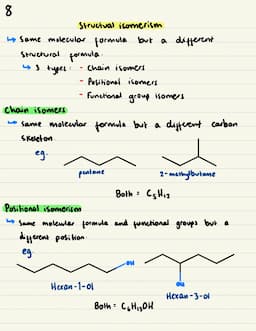 8
Structual isomerism
↳ Same molecular formula but a different
structural formula.
↳ 3 types: - Chain isomers
- Positional isomers
- Functional group isomers
Chain isomers
↳ Same molecular formula but a different carbon
skeleton
eg.
pentane
2-methylbutane
Both = C₅H₁₂
Positional isomerism
↳ Same molecular formula and functional groups but a
different position.
eg
OH
OH
Hexan-1-ol
Hexan-3-ol
Both = C₆H₁₃OH